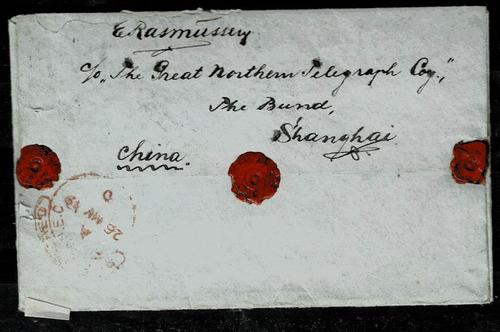 E Rasmussen
c/o, The Great Northern Telegraph Coy.,"
The Bund,
Shanghai
China.
26 MY